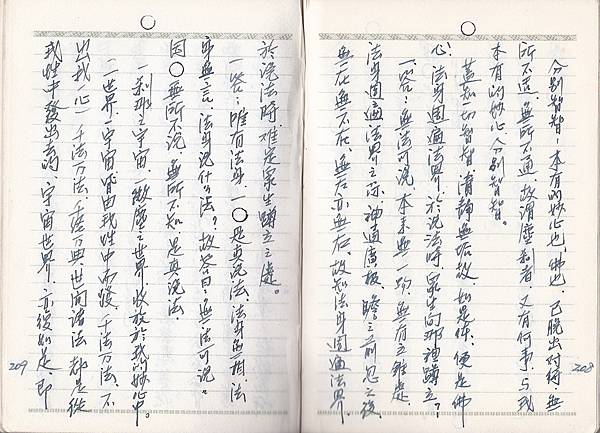 分別智智，本有的妙心也，佛也，已脫出對待，無
所不遠，無所不通，故謂塵剎者，又有何事，与我
本有的妙心，分別智智。
蓋知一切智智清靜無垢故，如是体，便是佛
心！法身週遍法界，於說法時，眾生向那裡蹲立？
一、答：無法可說，本未無一項，無有立錐處，
法身週遍法界之际，神通廣被，瞻之前忽之後，
無在無不在，無右亦無左，故知法身週遍法界，
208
於說法時，难定眾生蹲立之處。
一答：唯有法身，一〇是真說法，法身無相法
身無言，法身說什么法？故答曰：無法可說。
因〇無所不說，無所不知，是真說法。
一剎那之宇宙，微塵之世界，收放於我的妙心中。
一世界一宇宙，皆由我性中而發，千法万法，不
出我一心，千法万法，千經万典，世間諸法，都是從
我性中發出去的，宇宙世界，亦復如是，即
209